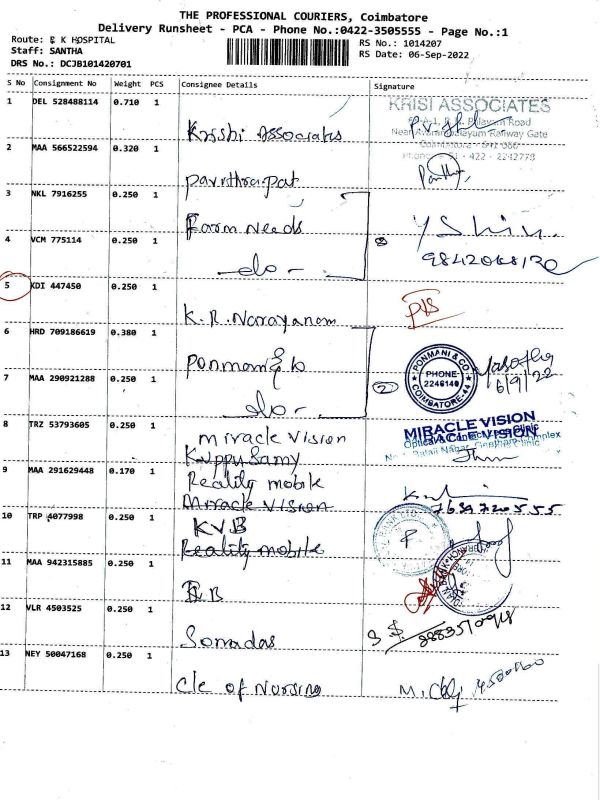 THE PROFESSIONAL COURIERS, Coimbatore
Delivery Runsheet - PCA - Phone No.:0422-3505555 - Page No.:1
Route: E K HOSPITAL
RS No.: 1014207
Staff: SANTHA
RS Date: 06-Sep-2022
DRS No.: DCJB101420701
S No Consignment No Weight PCS Consignee Details Signature
1 DEL 528488114 0.710 1
KRISI ASSOCIATES
Krishi Associates
2 MAA 566522594 0.320 1
Pavithra pat
3 NKL 7916255 0.250 1
Farm Needs
4 VCM 775114 0.250 1
do
5 KDI 447450 0.250 1
K.R. Narayanan
6 HRD 709186619 0.380 1
Ponmani & Co
PONMANI & CO
PHONE
2246140
COIMBATORE-44
6/9/22
7 MAA 290921288 0.250 1
do
2
8 TRZ 53793605 0.250 1
Miracle Vision
MIRACLE VISION
Kuppusamy
9 MAA 291629448 0.170 1
Reality mobile
Miracle Vision
10 TRP 4077998 0.250 1
KVB
Reality mobile
11 MAA 942315885 0.250 1
12 VLR 4503525 0.250 1
Somadas
13 NEY 50047168 0.250 1
Cle of Nursing